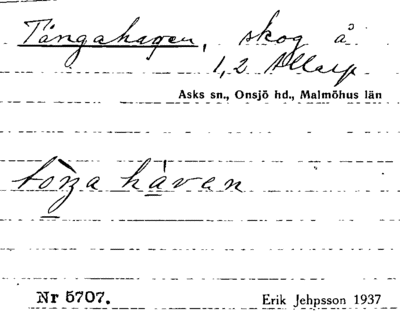 Tångahagen, skog å
1,2 Allarp
Asks sn., Onsjö hd., Malmöhus län
håvan
Nr 5707.
Erik Jehpsson 1937